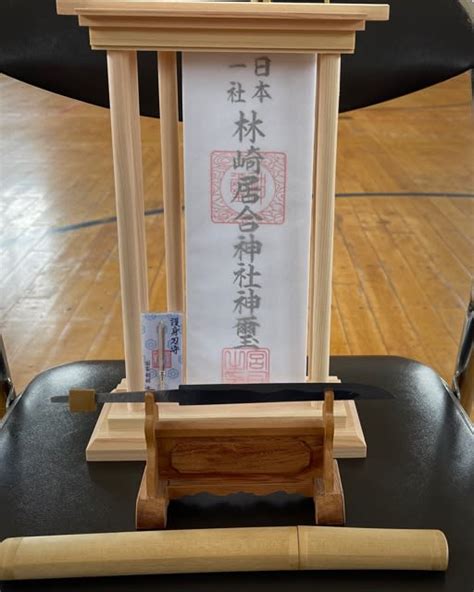 日本
一社
林崎居合神社神璽
護身刀守